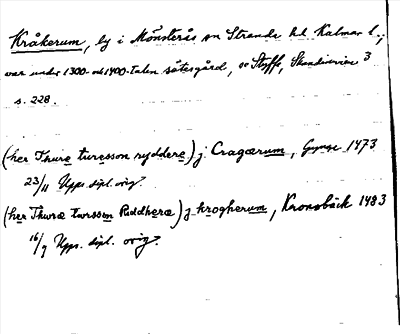 Kråkerum, by i Mönsterås sn Stranda hd Kalmar l.;
var under 1300- och 1400-talen sätesgård, se Styffe, Skandinavien 3
s. 228.
(her Thure turesson ryddere) j Cragærum, Gynge 1473
23/11 Upps. dipl. orig.
(her Thuræ turssøn Riddhere) j krogherum, Kronobäck 1483
16/9 Upps. dipl. orig.